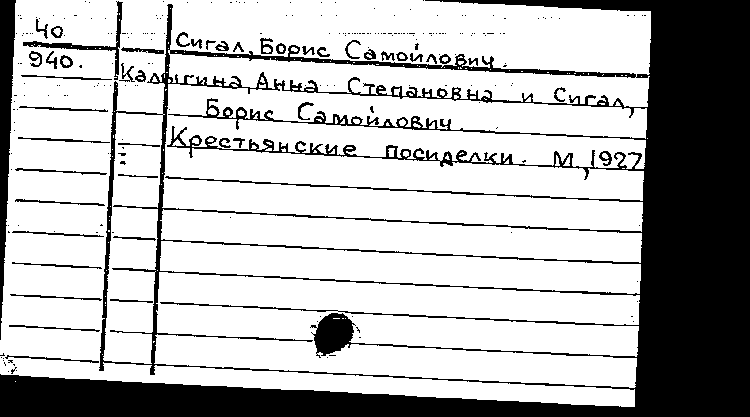 40 Сигал, Борис Самойлович.
940. Калыгина, Анна Степановна и Сигал,
Борис Самойлович.
Крестьянские посиделки. М, 1927